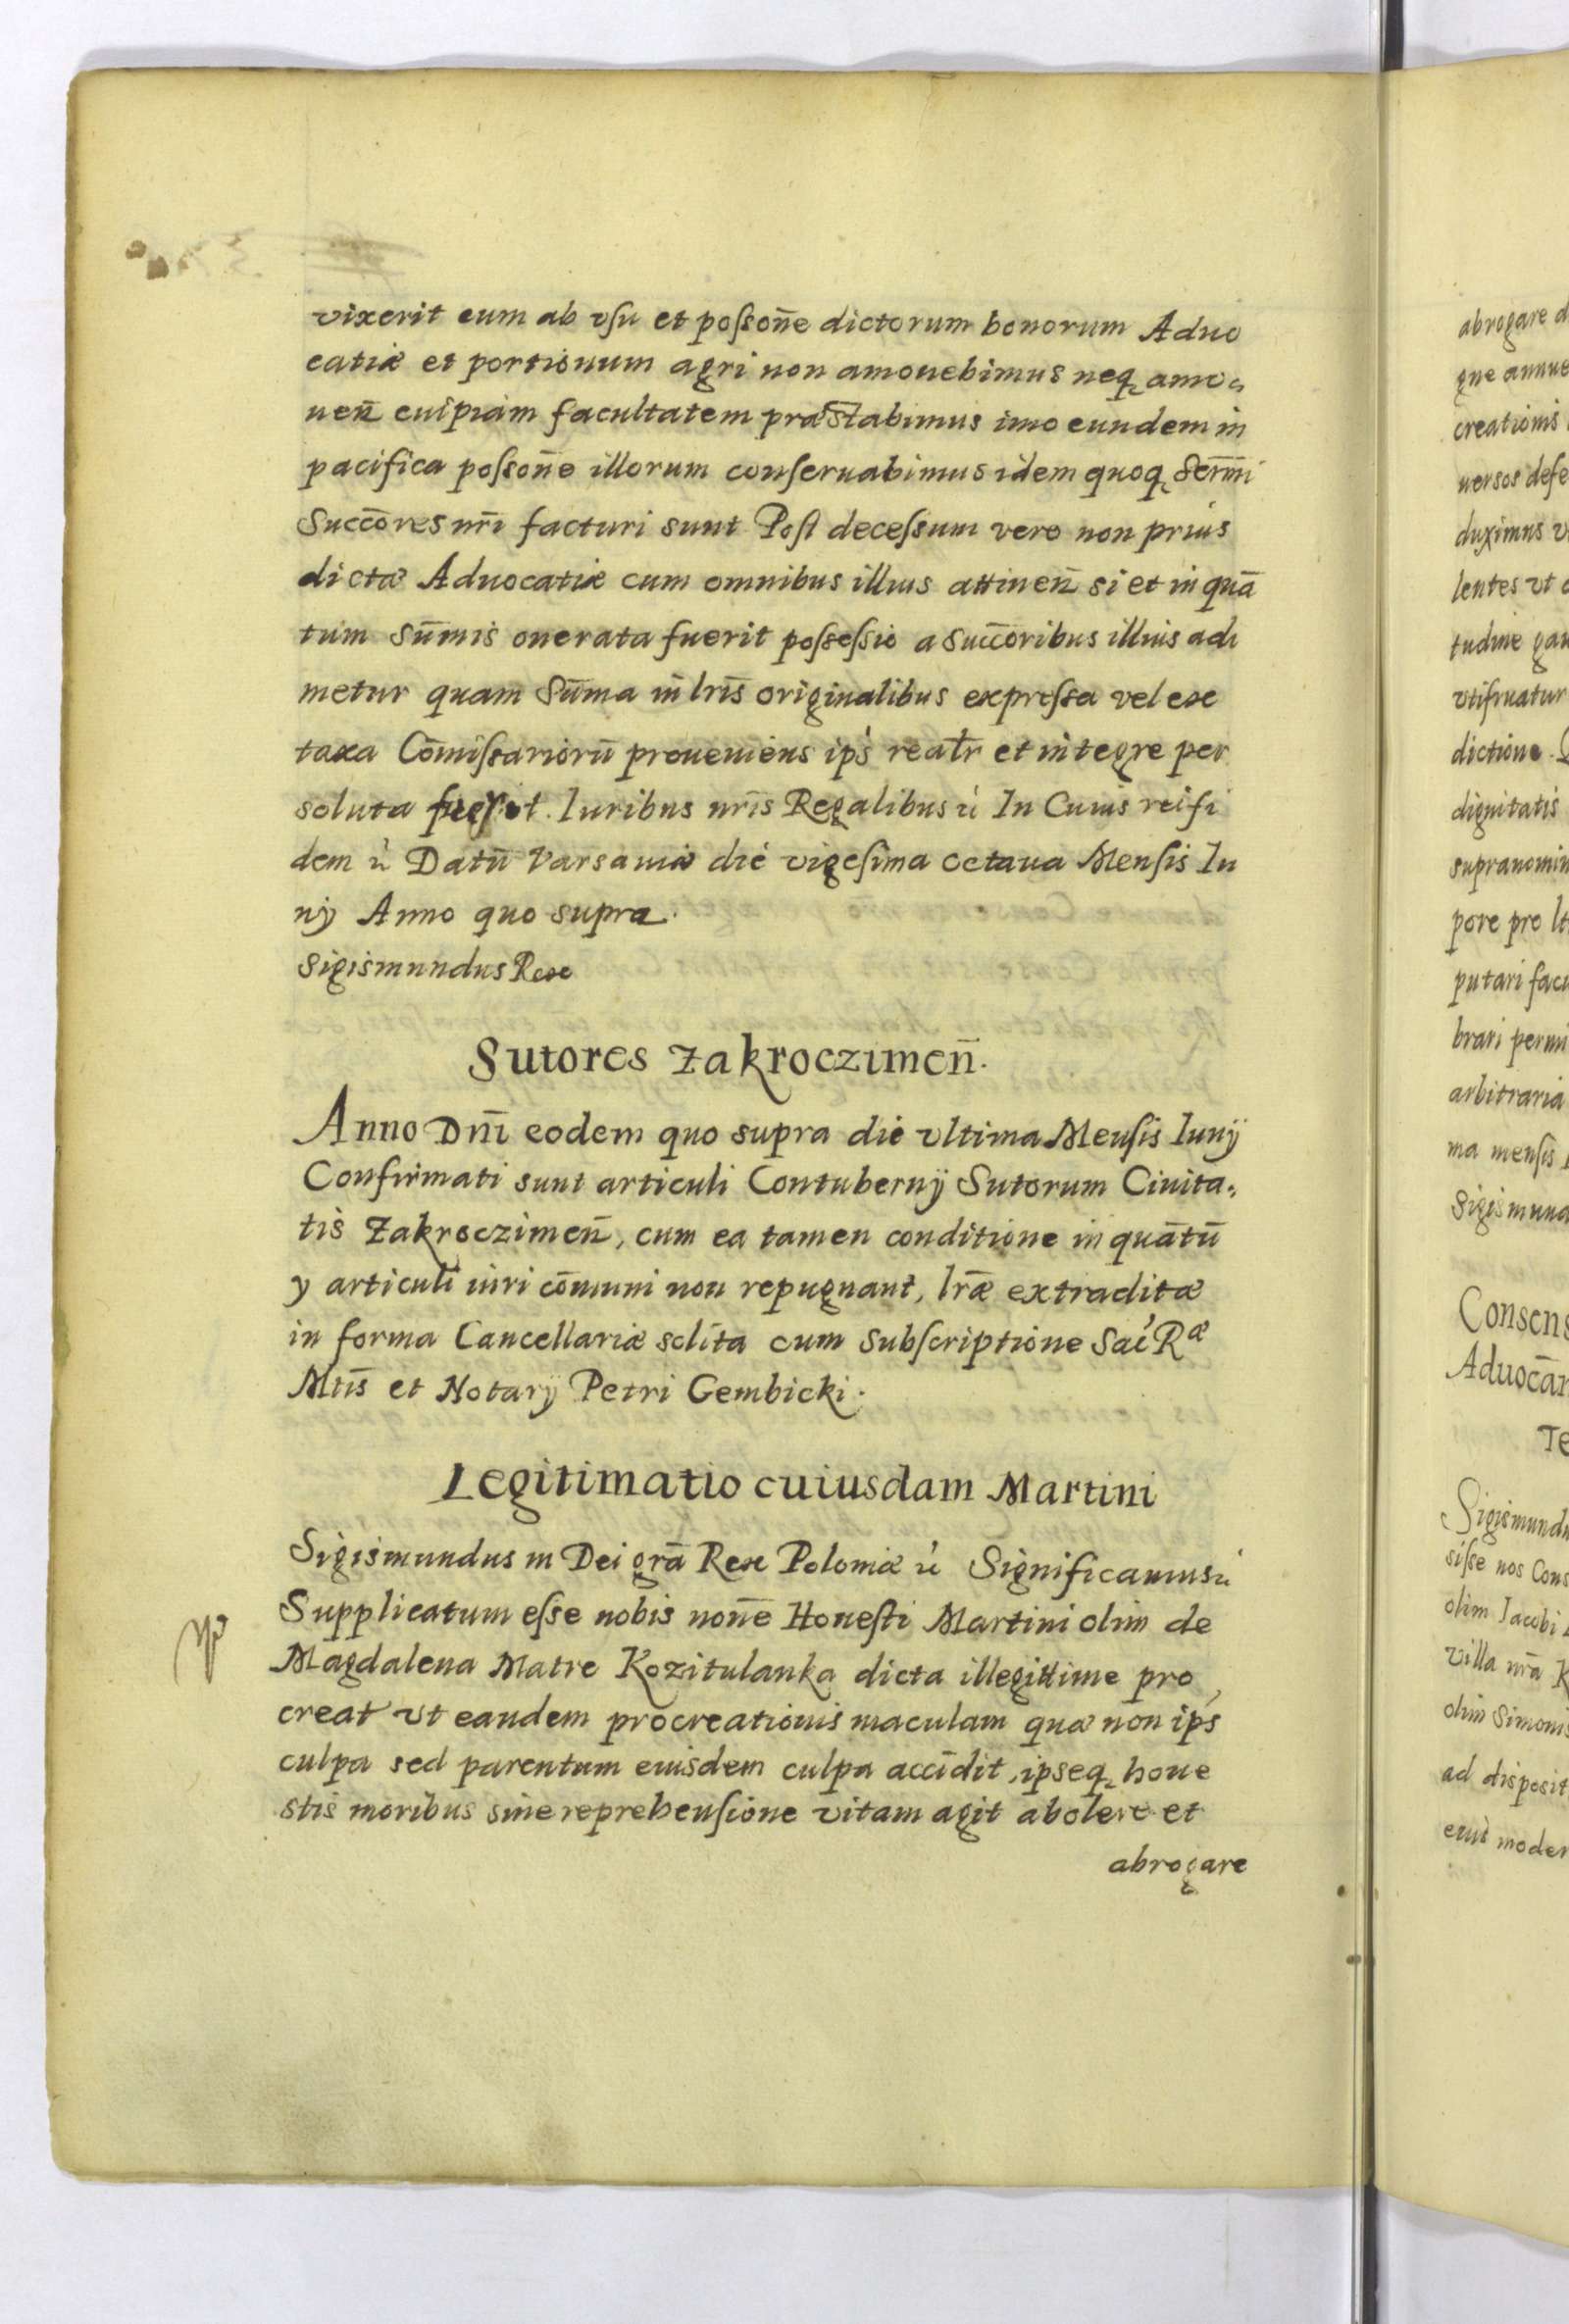 vixerit eum ab vsu et possoñe dictorum bonorum Aduo
catiæ et portionum agri non amouebimus neq amo
ueñ cuipiam facultatem præstabimus imo eundem in
pacifica possoñe illorum conseruabimus idem quoq Serm̄i
Succores nr̄i facturi sunt Post decessum vero non prius
dictæ Aduocatiæ cum omnibus illius attineñ si et in quā
tum sum̄is onerata fuerit possessio a succoribus illius adi
metur quam Sum̄a in lr̄is originalibus expressa vel ex
taxa Com̄issariorū proueniens ips realr et integre per
soluta fuerit. Iuribus nr̄is Regalibus ě In Cuius rei fi
dem ě Datū Varsauiæ die vigesima octaua Mensis Iu
nij Anno quo supra.
Sigismundus Rex
Sutores Zakroczimeñ.
Anno Dnī eodem quo supra die vltima Mensis Iunij
Confirmati sunt articuli Contubernij Sutorum Ciuita=
tis Zakroczimeñ, cum ea tamen conditione in quātū
y articuli iuri cōmuni non repugnant, lr̄æ extraditæ
in forma Cancellariæ solita cum subscriptione Sac Ræ
Mtis et Notarij Petri Gembicki.
Legitimatio cuiusdam Martini
Sigismundus III Dei grā Rex Poloniæ ě Significamus ě
Supplicatum esse nobis noñe Honesti Martini olim de
Magdalena Matre Kozitulanka dicta illegittime pro
creat vt eandem procreationis maculam quæ non ips
culpa sed parentum eiusdem culpa accidit, ipseq hone
stis moribus sine reprehensione vitam agit abolere et
abrogare
abrogare d
que annue
creationis
uersos defe
duximus v
lentes vt
tudine gau
vtifruatur
dictione.
dignitatis
supranomin
pore pro lt
putari facu
brari permi
arbitraria
ma mensis
Sigismund
Consens
Aduocā
Te
Sigismundu
sisse nos Cons
olim Iacobi
villa nr̄a K
olim Simonis
ad disposit
eius moder